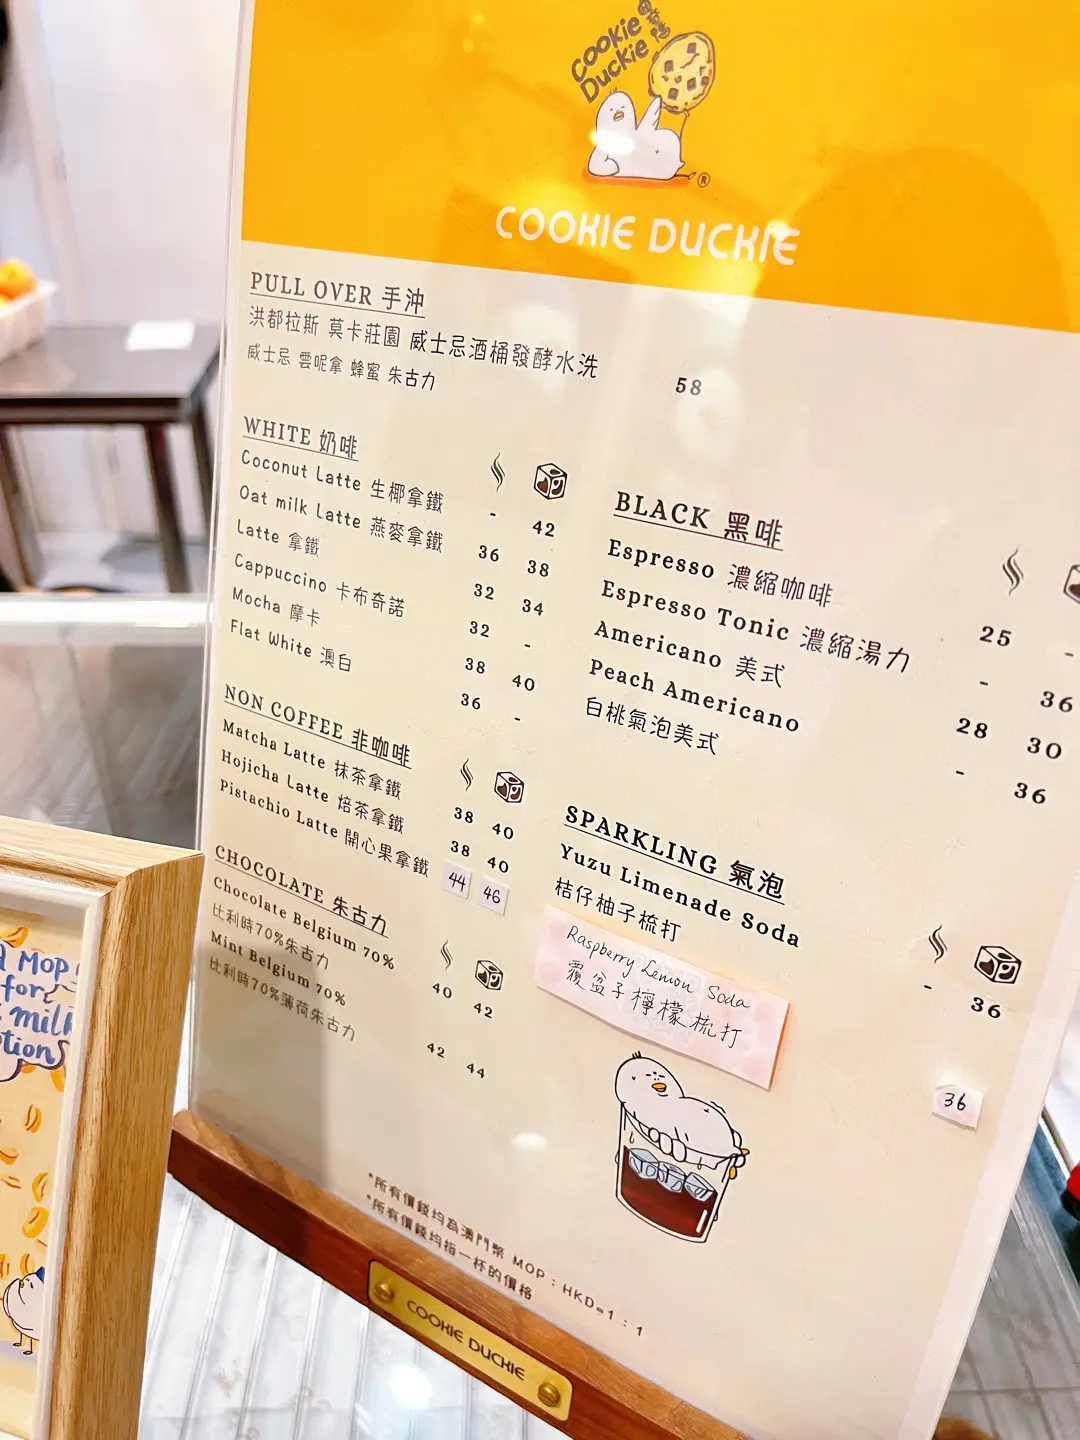 Cookie
Duckie
®
COOKIE DUCKIE
PULL OVER 手沖
洪都拉斯 莫卡莊園 威士忌酒桶發酵水洗
威士忌 雲呢拿 蜂蜜 朱古力
58
WHITE 奶啡
Coconut Latte 生椰拿鐵 - 42
Oat milk Latte 燕麥拿鐵 36 38
Latte 拿鐵 32 34
Cappuccino 卡布奇諾 32 -
Mocha 摩卡 38 40
Flat White 澳白 36 -
NON COFFEE 非咖啡
Matcha Latte 抹茶拿鐵 38 40
Hojicha Latte 焙茶拿鐵 38 40
Pistachio Latte 開心果拿鐵 44 46
CHOCOLATE 朱古力
Chocolate Belgium 70% 40 42
比利時70%朱古力
Mint Belgium 70% 42 44
比利時70%薄荷朱古力
BLACK 黑啡
Espresso 濃縮咖啡 25 -
Espresso Tonic 濃縮湯力 - 36
Americano 美式 28 30
Peach Americano - 36
白桃氣泡美式
SPARKLING 氣泡
Yuzu Limenade Soda - 36
桔仔柚子梳打
Raspberry Lemon Soda
覆盆子檸檬梳打
36
*所有價錢均為澳門幣 MOP：HKD=1：1
*所有價錢均指一杯的價格
COOKIE DUCKIE
MOP
for
milk